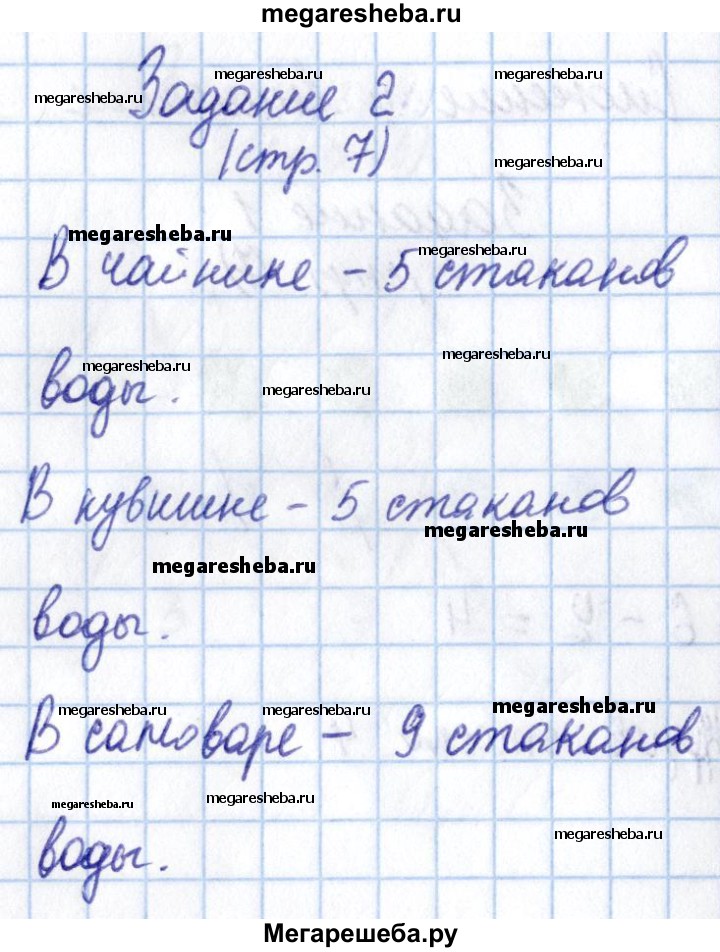 megaresheba.ru
megaresheba.ru megaresheba.ru
megaresheba.ru
Задание 2
(стр. 7) megaresheba.ru
megaresheba.ru
megaresheba.ru
В чайнике – 5 стаканов
megaresheba.ru
megaresheba.ru megaresheba.ru
воды.
В кувшине – 5 стаканов
megaresheba.ru
megaresheba.ru
воды.
megaresheba.ru megaresheba.ru megaresheba.ru
В самоваре – 9 стаканов
megaresheba.ru megaresheba.ru
megaresheba.ru
воды.
Мегарешеба.ру